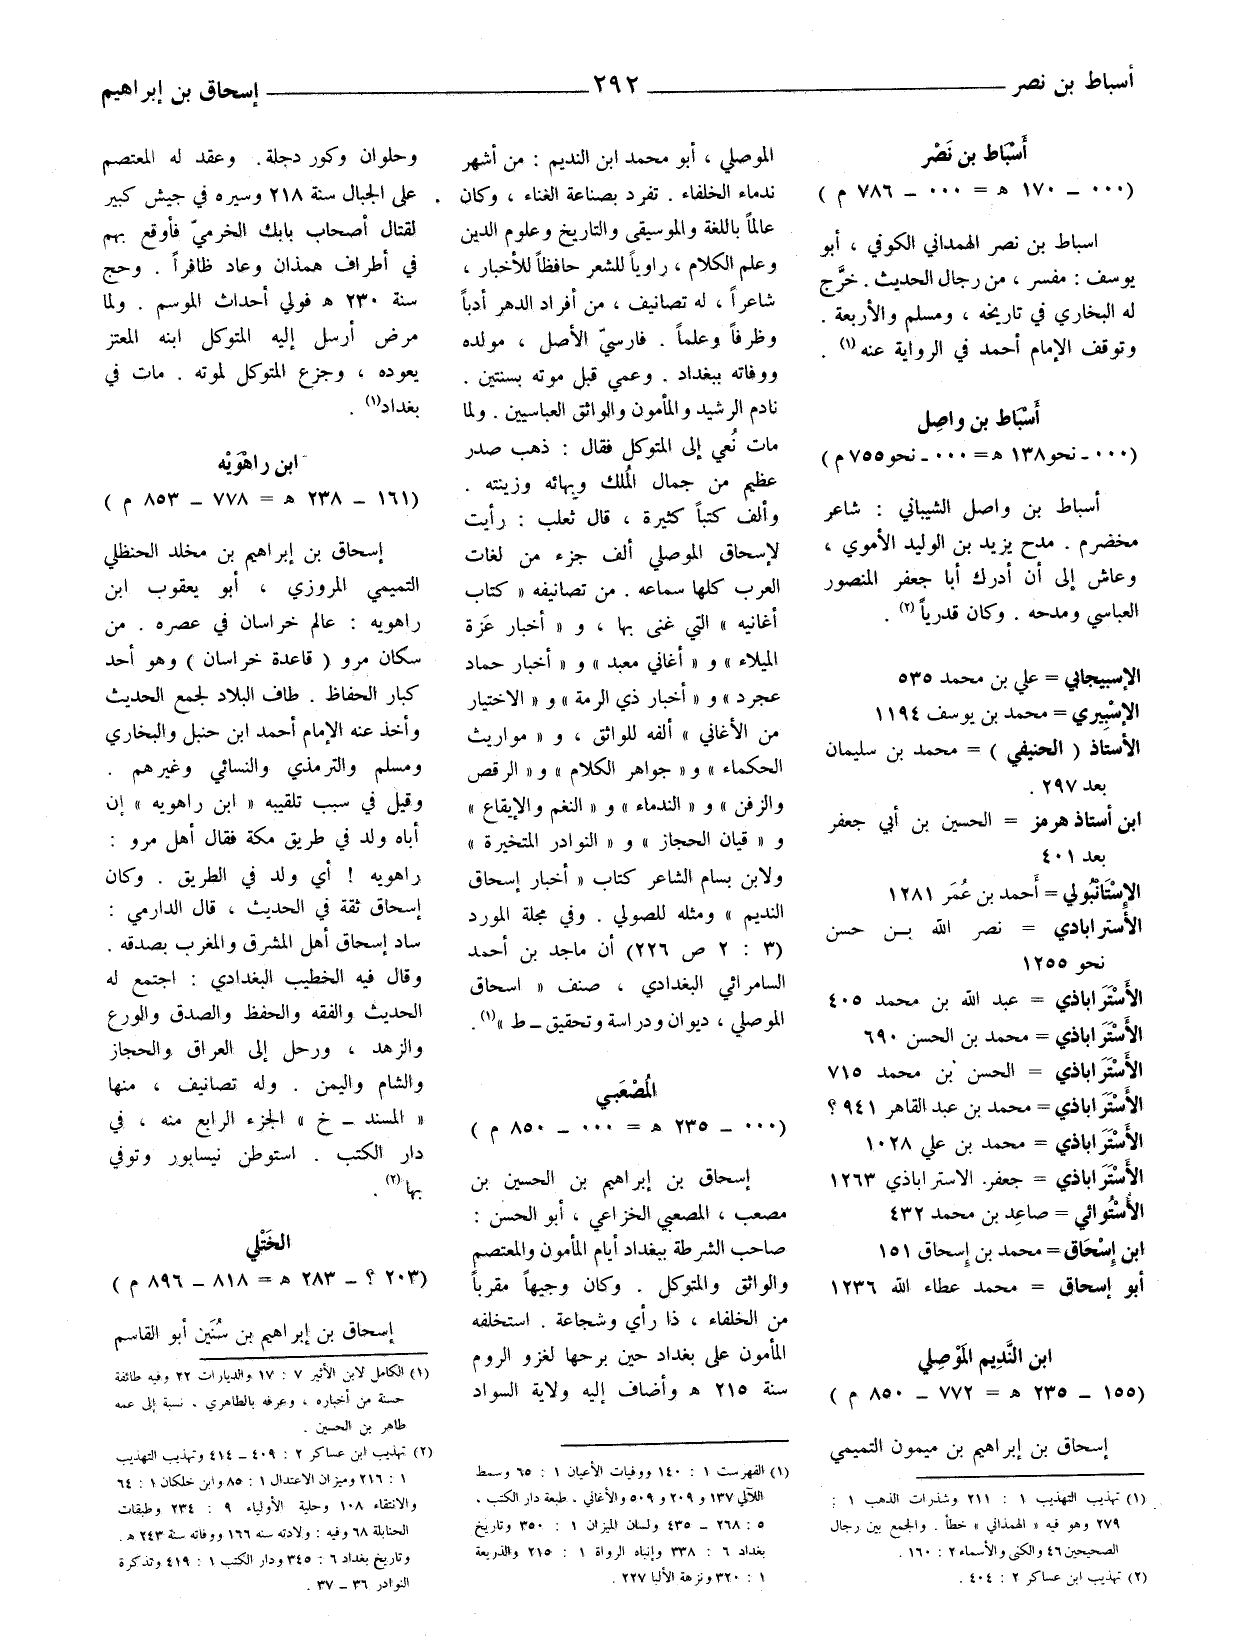 أسباط بن نصر
٢٩٢
إسحاق بن إبراهيم
أَسْبَاط بن نَصْر
(٠٠٠ ـ ١٧٠ ه = ٠٠٠ ـ ٧٨٦ م )
اسباط بن نصر الهمداني الكوفي ، أبو
يوسف : مفسر ، من رجال الحديث . خرَّج
له البخاري في تاريخه ، ومسلم والأربعة .
وتوقف الإمام أحمد في الرواية عنه (١) .
أَسْبَاط بن واصِل
(٠٠٠ ـ نحو ١٣٨ ه = ٠٠٠ ـ نحو ٧٥٥ م )
أسباط بن واصل الشيباني : شاعر
مخضرم . مدح يزيد بن الوليد الأموي ،
وعاش إلى أن أدرك أبا جعفر المنصور
العباسي ومدحه . وكان قدرياً (٢) .
الإسبيجابي = علي بن محمد ٥٣٥
الإسْبِيري = محمد بن يوسف ١١٩٤
الأستاذ ( الحنيفي ) = محمد بن سليمان
بعد ٢٩٧ .
ابن أستاذ هرمز = الحسين بن أبي جعفر
بعد ٤٠١
الإِسْتَانْبُولي = أَحمد بن عُمَر ١٢٨١
الأَسترابادي = نصر الله بن حسن
نحو ١٢٥٥
الأَسْتَراباذي = عبد الله بن محمد ٤٠٥
الأَسْتَراباذي = محمد بن الحسن ٦٩٠
الأَسْتَراباذي = الحسن بن محمد ٧١٥
الأَسْتَراباذي = محمد بن عبد القاهر ٩٤١ ؟
الأَسْتَراباذي = محمد بن علي ١٠٢٨
الأَسْتَراباذي = جعفر. الاستراباذي ١٢٦٣
الأُسْتُوائي = صاعِد بن محمد ٤٣٢
ابن إِسْحَاق = محمد بن إِسحاق ١٥١
أبو إسحاق = محمد عطاء الله ١٢٣٦
ابن النَّدِيم المَوْصِلي
(١٥٥ ـ ٢٣٥ ه = ٧٧٢ ـ ٨٥٠ م )
إسحاق بن إبراهيم بن ميمون التميمي
(١) تهذيب التهذيب ١ : ٢١١ وشذرات الذهب ١ :
٢٧٩ وهو فيه « الهمذاني » خطأ . والجمع بين رجال
الصحيحين ٤٦ والكنى والأسماء ٢ : ١٦٠ .
(٢) تهذيب ابن عساكر ٢ : ٤٠٤ .
الموصلي ، أبو محمد ابن النديم : من أشهر
ندماء الخلفاء . تفرد بصناعة الغناء ، وكان
عالماً باللغة والموسيقى والتاريخ وعلوم الدين
وعلم الكلام ، راوياً للشعر حافظاً للأخبار ،
شاعراً ، له تصانيف ، من أفراد الدهر أدباً
وظرفاً وعلماً . فارسيّ الأصل ، مولده
ووفاته ببغداد . وعمي قبل موته بسنتين .
نادم الرشيد والمأمون والواثق العباسيين . ولما
مات نُعي إلى المتوكل فقال : ذهب صدر
عظيم من جمال المُلك وبهائه وزينته .
وألف كتباً كثيرة ، قال ثعلب : رأيت
لإسحاق الموصلي ألف جزء من لغات
العرب كلها سماعه . من تصانيفه « كتاب
أغانيه » التي غنى بها ، و « أخبار عَزة
الميلاء » و « أغاني معبد » و « أخبار حماد
عجرد » و « أخبار ذي الرمة » و « الاختيار
من الأغاني » ألفه للواثق ، و « مواريث
الحكماء » و « جواهر الكلام » و « الرقص
والزفن » و « الندماء » و « النغم والإيقاع »
و « قيان الحجاز » و « النوادر المتخيرة »
ولابن بسام الشاعر كتاب « أخبار إسحاق
النديم » ومثله للصولي . وفي مجلة المورد
(٣ : ٢ ص ٢٢٦) أن ماجد بن أحمد
السامرائي البغدادي ، صنف « اسحاق
الموصلي ، ديوان ودراسة وتحقيق ـ ط » (١) .
المُصْعَبي
(٠٠٠ ـ ٢٣٥ ه = ٠٠٠ ـ ٨٥٠ م )
إسحاق بن إبراهيم بن الحسين بن
مصعب ، المصعبي الخزاعي ، أبو الحسن :
صاحب الشرطة ببغداد أيام المأمون والمعتصم
والواثق والمتوكل . وكان وجيهاً مقرباً
من الخلفاء ، ذا رأي وشجاعة . استخلفه
المأمون على بغداد حين برحها لغزو الروم
سنة ٢١٥ ه وأضاف إليه ولاية السواد
(١) الفهرست ١ : ١٤٠ ووفيات الأعيان ١ : ٦٥ وسمط
اللآلي ١٣٧ و ٢٠٩ و ٥٠٩ والأغاني . طبعة دار الكتب .
٥ : ٢٦٨ ـ ٤٣٥ ولسان الميزان ١ : ٣٥٠ وتاريخ
بغداد ٦ : ٣٣٨ وإنباه الرواة ١ : ٢١٥ والذريعة
١ : ٣٢٠ ونزهة الألبا ٢٢٧ .
وحلوان وكور دجلة . وعقد له المعتصم
على الجبال سنة ٢١٨ وسيره في جيش كبير
لقتال أصحاب بابك الخرميّ فأوقع بهم
في أطراف همذان وعاد ظافراً . وحج
سنة ٢٣٠ ه فولي أحداث الموسم . ولما
مرض أرسل إليه المتوكل ابنه المعتز
يعوده ، وجزع المتوكل لموته . مات في
بغداد (١) .
ابن راهَوَيْه
(١٦١ ـ ٢٣٨ ه = ٧٧٨ ـ ٨٥٣ م )
إسحاق بن إبراهيم بن مخلد الحنظلي
التميمي المروزي ، أبو يعقوب ابن
راهويه : عالم خراسان في عصره . من
سكان مرو ( قاعدة خراسان ) وهو أحد
كبار الحفاظ . طاف البلاد لجمع الحديث
وأخذ عنه الإمام أحمد ابن حنبل والبخاري
ومسلم والترمذي والنسائي وغيرهم .
وقيل في سبب تلقيبه « ابن راهويه » إن
أباه ولد في طريق مكة فقال أهل مرو :
راهويه ! أي ولد في الطريق . وكان
إسحاق ثقة في الحديث ، قال الدارمي :
ساد إسحاق أهل المشرق والمغرب بصدقه .
وقال فيه الخطيب البغدادي : اجتمع له
الحديث والفقه والحفظ والصدق والورع
والزهد ، ورحل إلى العراق والحجاز
والشام واليمن . وله تصانيف ، منها
« المسند ـ خ » الجزء الرابع منه ، في
دار الكتب . استوطن نيسابور وتوفي
بها (٢) .
الخَتْلي
(٢٠٣ ؟ ـ ٢٨٣ ه = ٨١٨ ـ ٨٩٦ م )
إسحاق بن إبراهيم بن سُنَين أبو القاسم
(١) الكامل لابن الأثير ٧ : ١٧ والديارات ٢٢ وفيه طائفة
حسنة من أخباره ، وعرفه بالطاهري . نسبة إلى عمه
طاهر بن الحسين .
(٢) تهذيب ابن عساكر ٢ : ٤٠٩ ـ ٤١٤ وتهذيب التهذيب
١ : ٢١٦ وميزان الاعتدال ١ : ٨٥ وابن خلكان ١ : ٦٤
والانتقاء ١٠٨ وحلية الأولياء ٩ : ٢٣٤ وطبقات
الحنابلة ٦٨ وفيه : ولادته سنة ١٦٦ ووفاته سنة ٢٤٣ ه .
وتاريخ بغداد ٦ : ٣٤٥ ودار الكتب ١ : ٤١٩ وتذكرة
النوادر ٣٦ ـ ٣٧ .